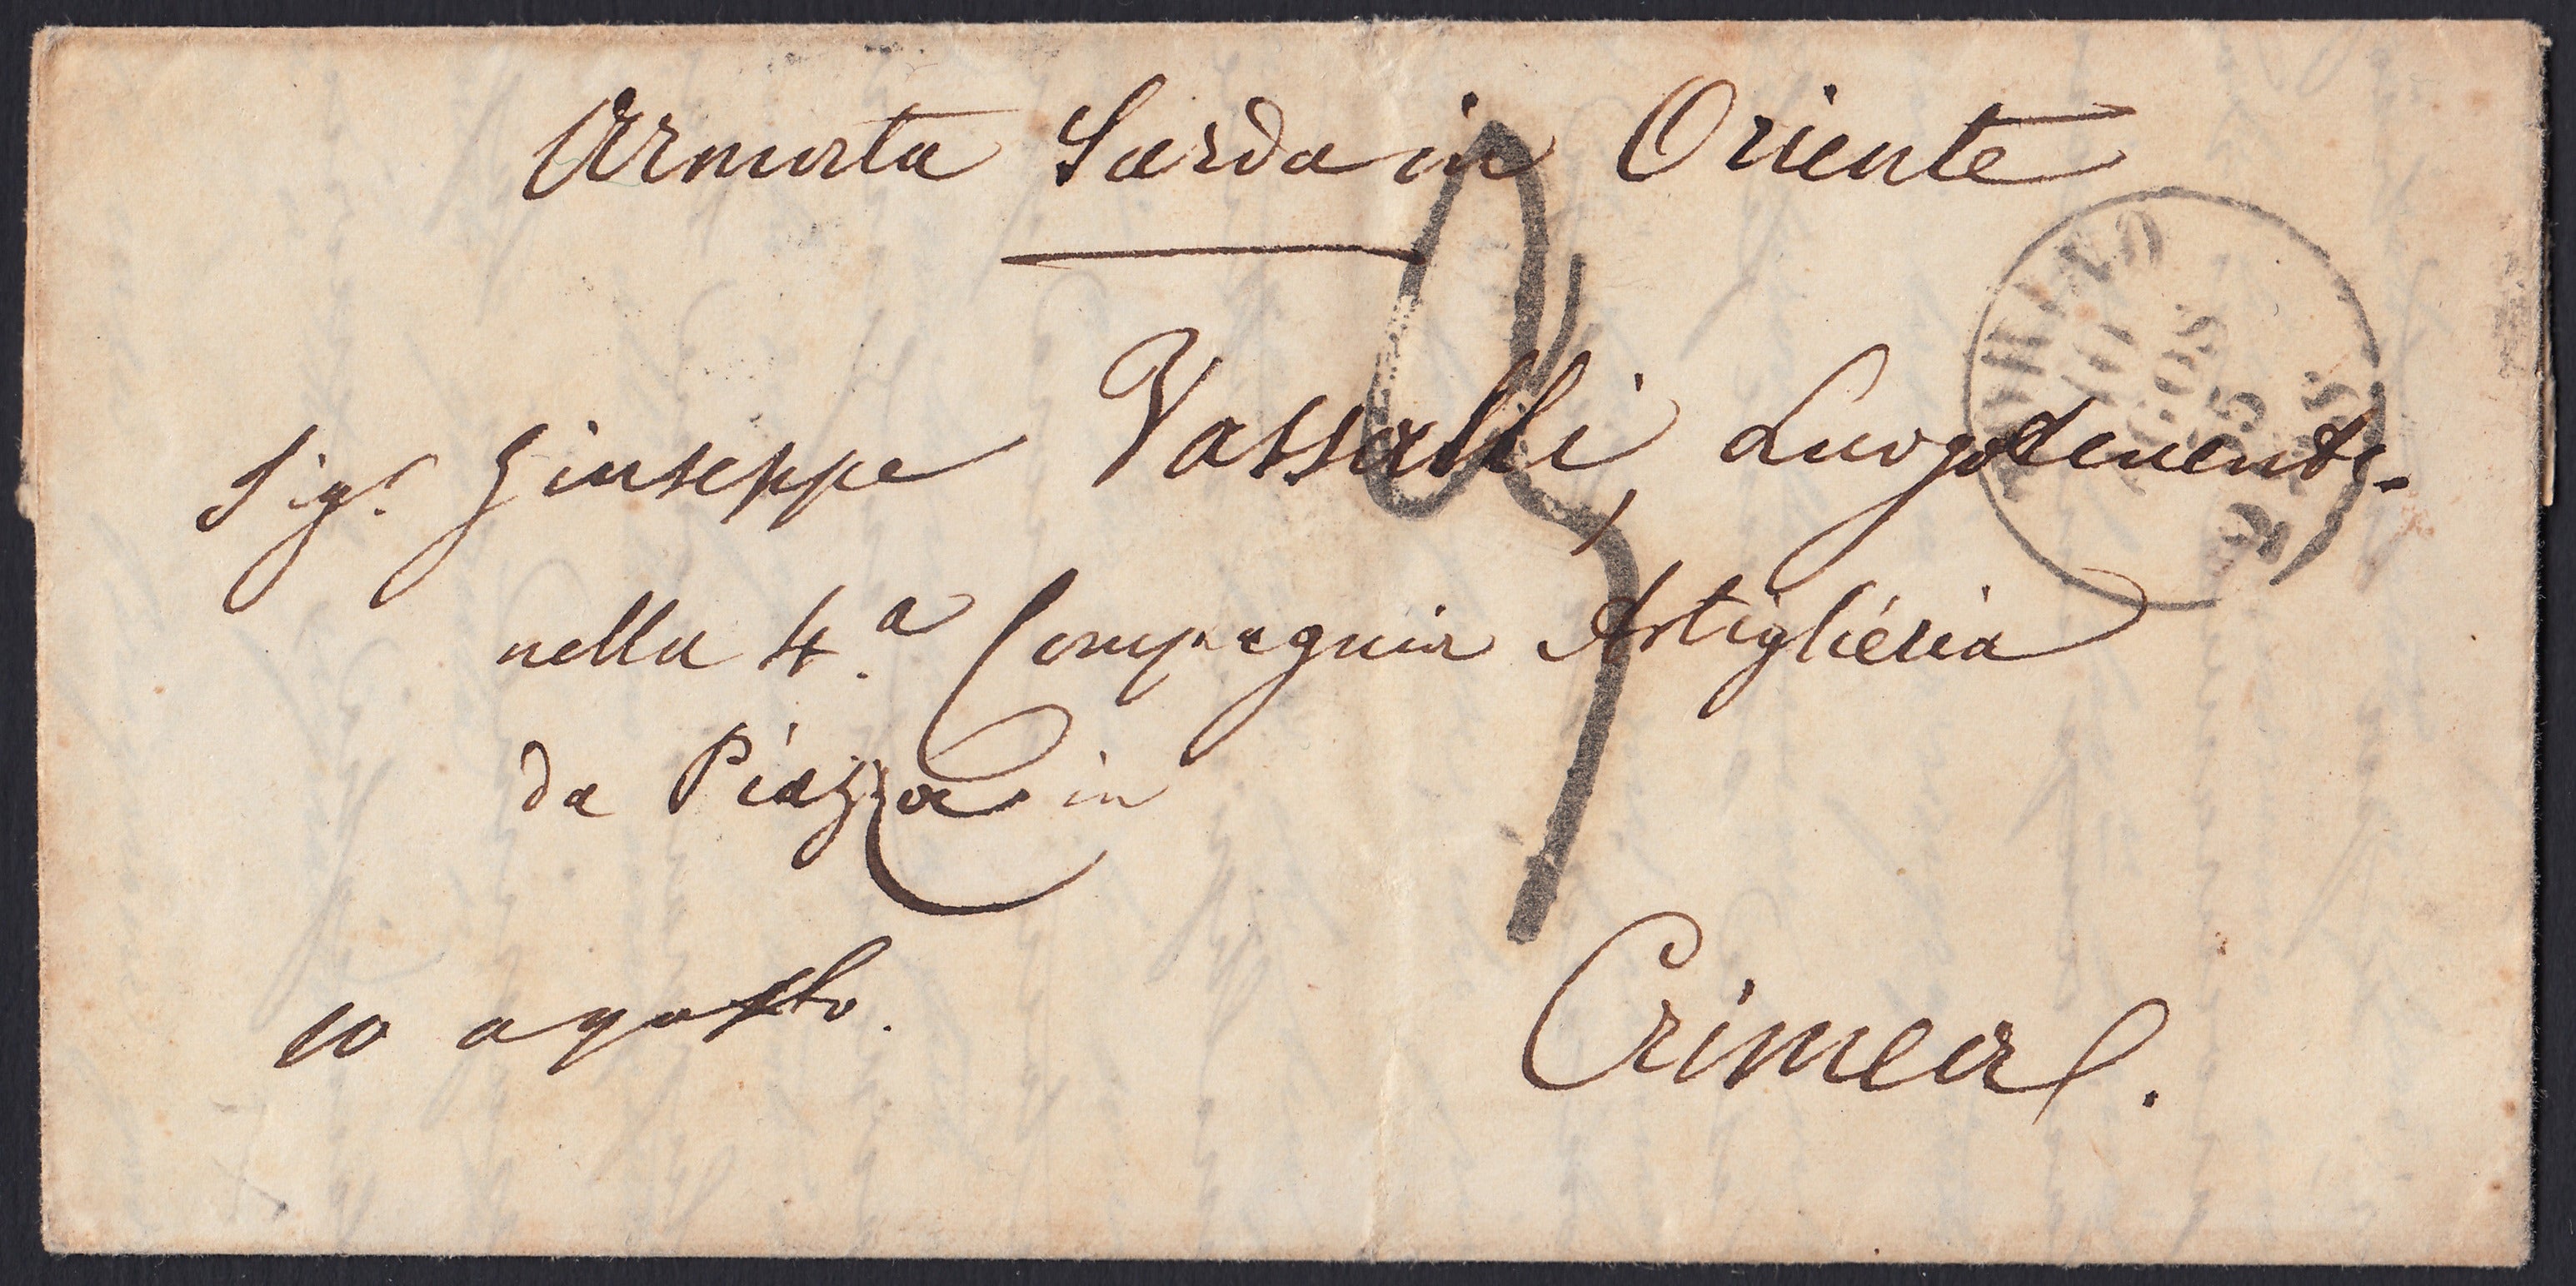 Armata Sarda in Oriente
Sigr. Giuseppe Vassalli, Luogotenente
nella 4.a Compagnia Artiglieria
da Piazza in
10 agosto.
Crimea.
10
AGOS
55